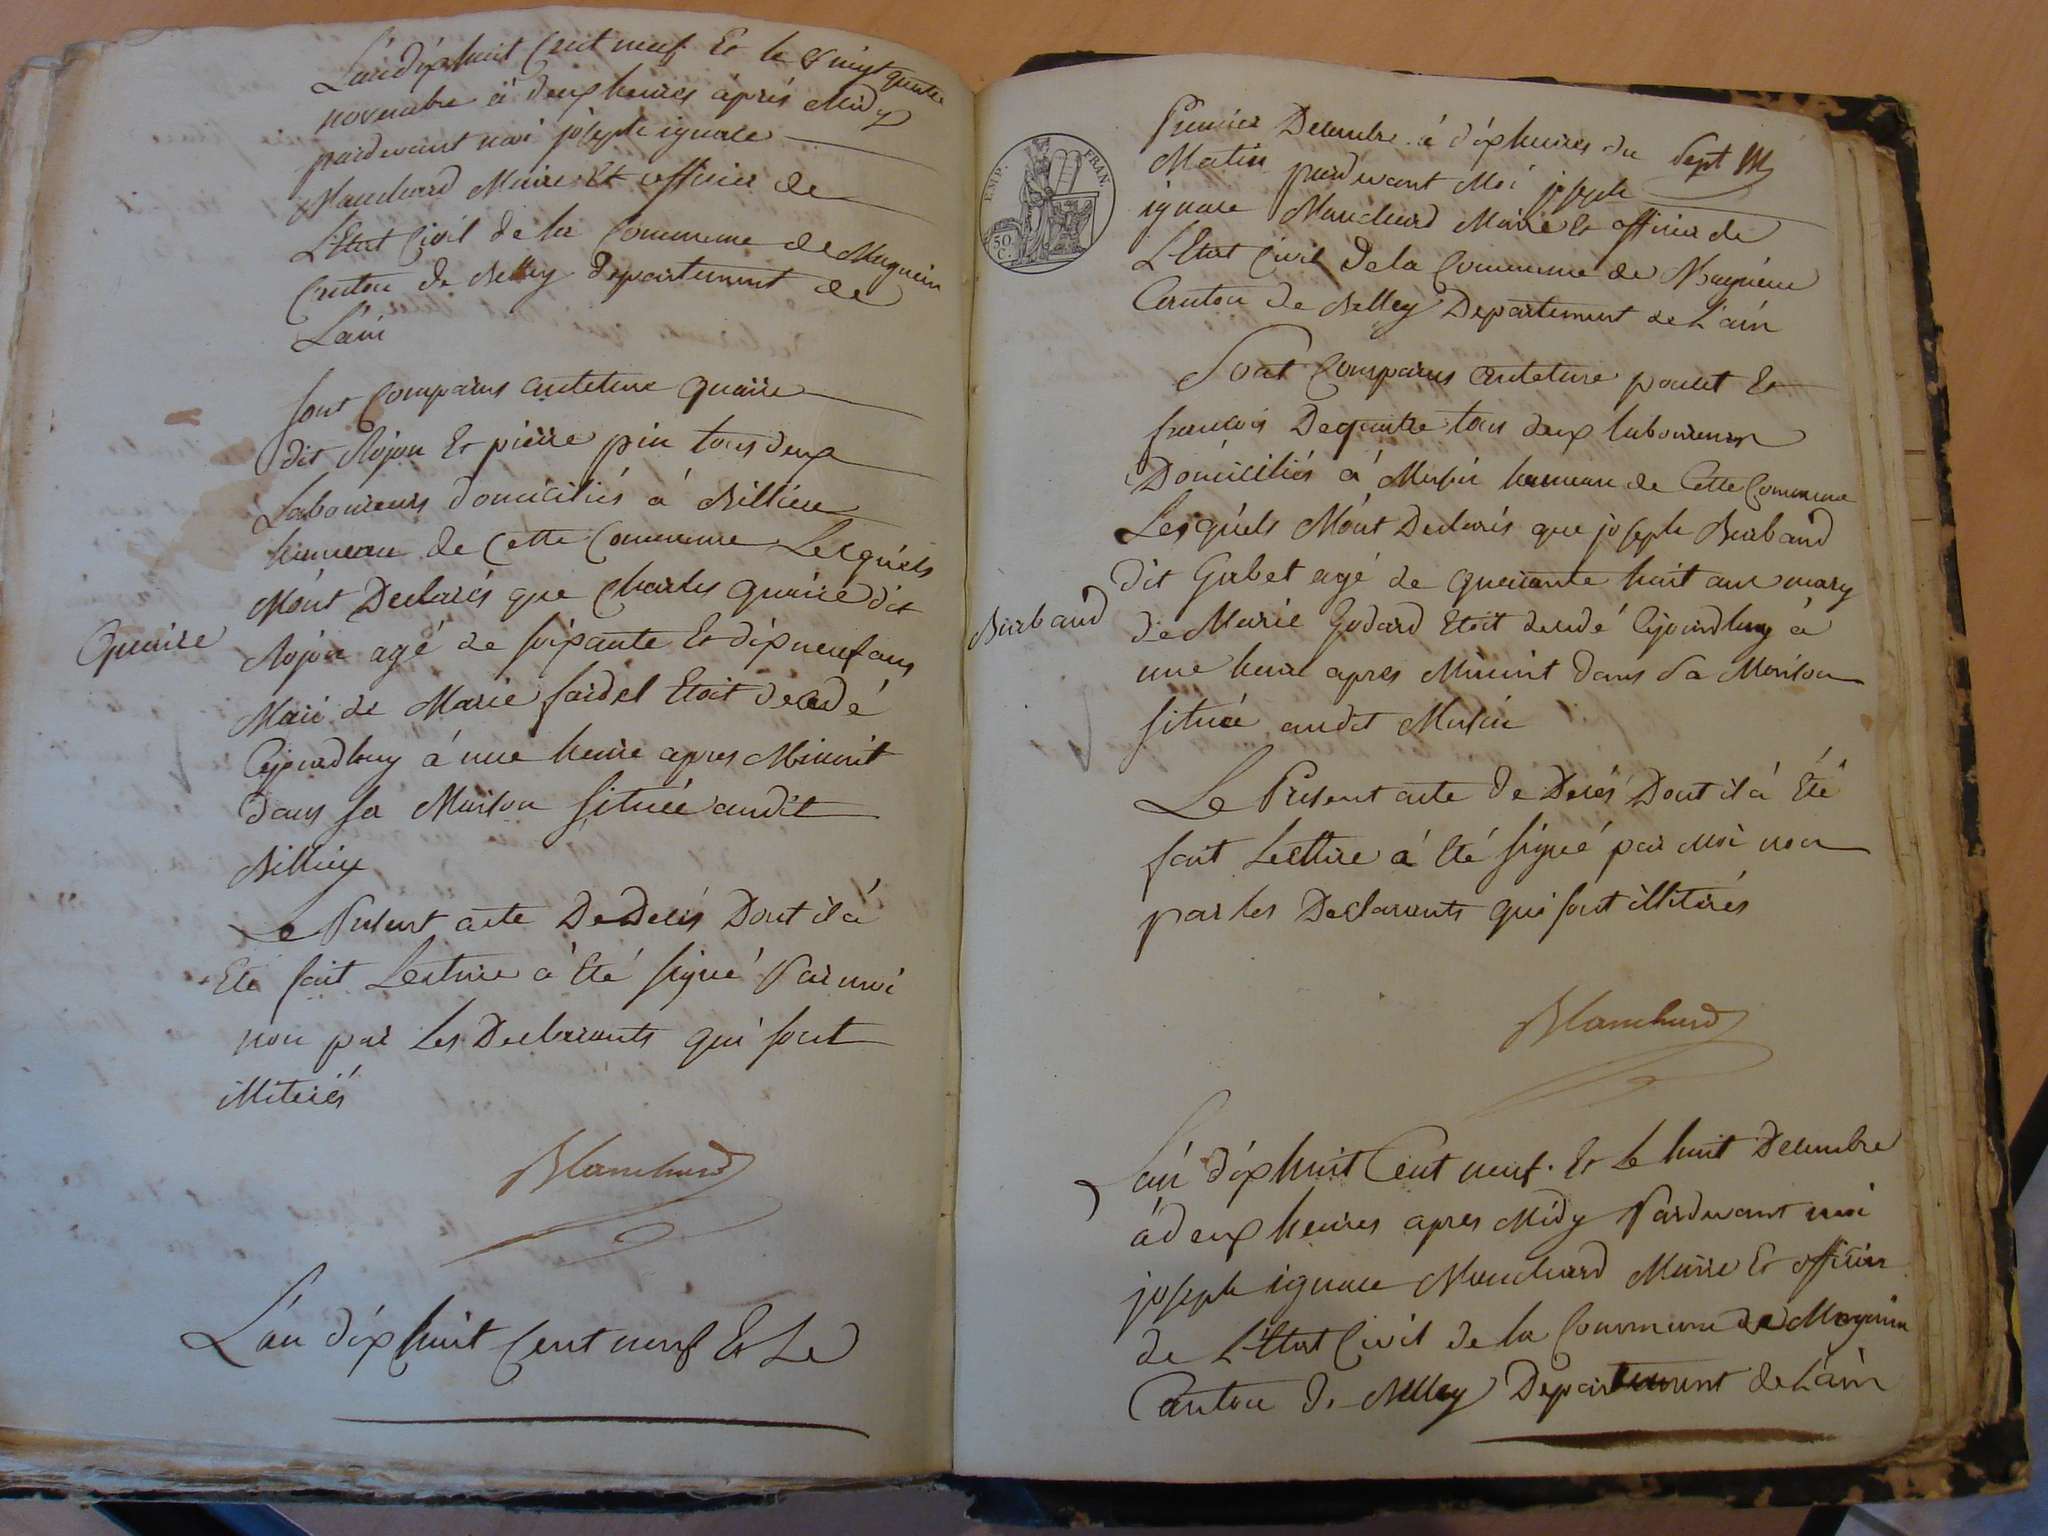 L'an dix huit Cent neuf Et le vingt quatre
novembre à deux heures après Midy
pardevant moi joseph ignace
Blanchard Maire Et officier de
L'Etat Civil de la Commune de Magnieu
Canton de Belley Département de
L'ain
Sont Comparus anteleme quaire
dit Rojon Et pierre pin tous deux
Laboureurs domiciliés à Billieu
hameau de Cette Commune Lesquels
M'ont Declarés que Charles quaire dit
Quaire
Rojon agé de soixante Et dix neuf ans
Mari de Marie fardel Etoit decedé
Ajourdhuy à une heure apres Minuit
dans sa Maison située audit
Billieu
Le Present acte De Decés Dont il à
Eté fait Lecture à Eté signé Par moi
non par Les Declarants qui sont
illiterés
Blanchard
L'an dix huit Cent neuf Et Le
EMP. FRAN.
50 C.
Sept
Premier Decembre à dix heures du
Matin pardevant Moi joseph
ignace Blanchard Maire Et officier de
L'Etat Civil De la Commune de Magnieu
Canton de Belley Departement de L'ain
Sont Comparus anteleme pouet Et
francois Dequatre tous deux laboureurs
Domiciliés à Musin hameau de Cette Commune
Lesquels M'ont Declarés que joseph Barband
dit Garbet agé de quarante huit ans mary
Barband
de Marie Godard Etoit decedé Ajourdhuy à
une heure apres Minuit dans Sa Maison
située audit Musin
Le Present acte de Decés Dont il à Eté
fait Lecture à Eté signé par Moi non
par les Declarants qui sont illiterés
Blanchard
L'an dix huit Cent neuf. Et Le huit Decembre
à deux heures apres Midy Pardevant moi
joseph ignace Blanchard Maire Et officier
de L'Etat Civil de la Commune de Magnieu
Canton De Belley Departement de L'ain